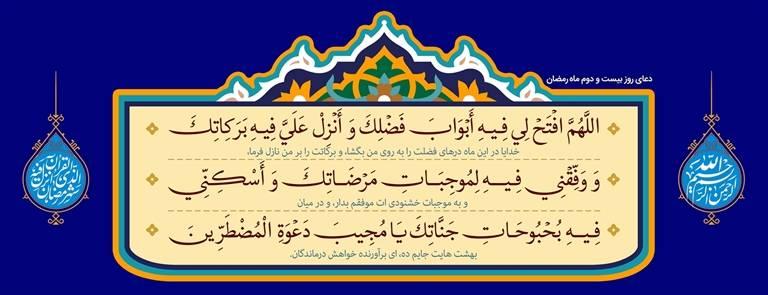 دعای روز بیست و دوم ماه رمضان
اللَّهُمَّ افْتَحْ لِي فِيهِ أَبْوَابَ فَضْلِكَ وَ أَنْزِلْ عَلَيَّ فِيهِ بَرَكَاتِكَ
خدایا در این ماه درهای فضلت را به روی من بگشا، و برکاتت را بر من نازل فرما،
وَ وَفِّقْنِي فِيهِ لِمُوجِبَاتِ مَرْضَاتِكَ وَ أَسْكِنِّي
و به موجبات خشنودی ات موفقم بدار، و در میان
فِيهِ بُحْبُوحَاتِ جَنَّاتِكَ يَا مُجِيبَ دَعْوَةِ الْمُضْطَرِّينَ
بهشت هایت جایم ده، ای برآورنده خواهش درماندگان.
بسم الله الرحمن الرحیم
شهر رمضان الذی انزل فیه القرآن